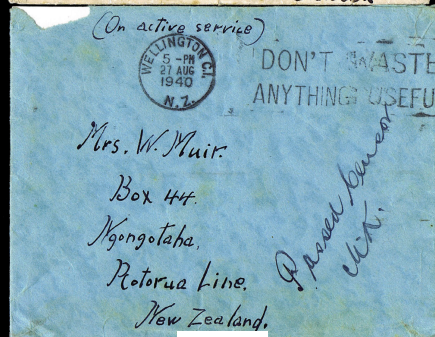 (On active service)
WELLINGTON C.1.
5 - PM
27 AUG
1940
N.Z.
DON'T WASTE
ANYTHING USEFU
Mrs. W. Muir.
Box 44.
Ngongotaha,
Rotorua Line,
New Zealand.
Passed Censor